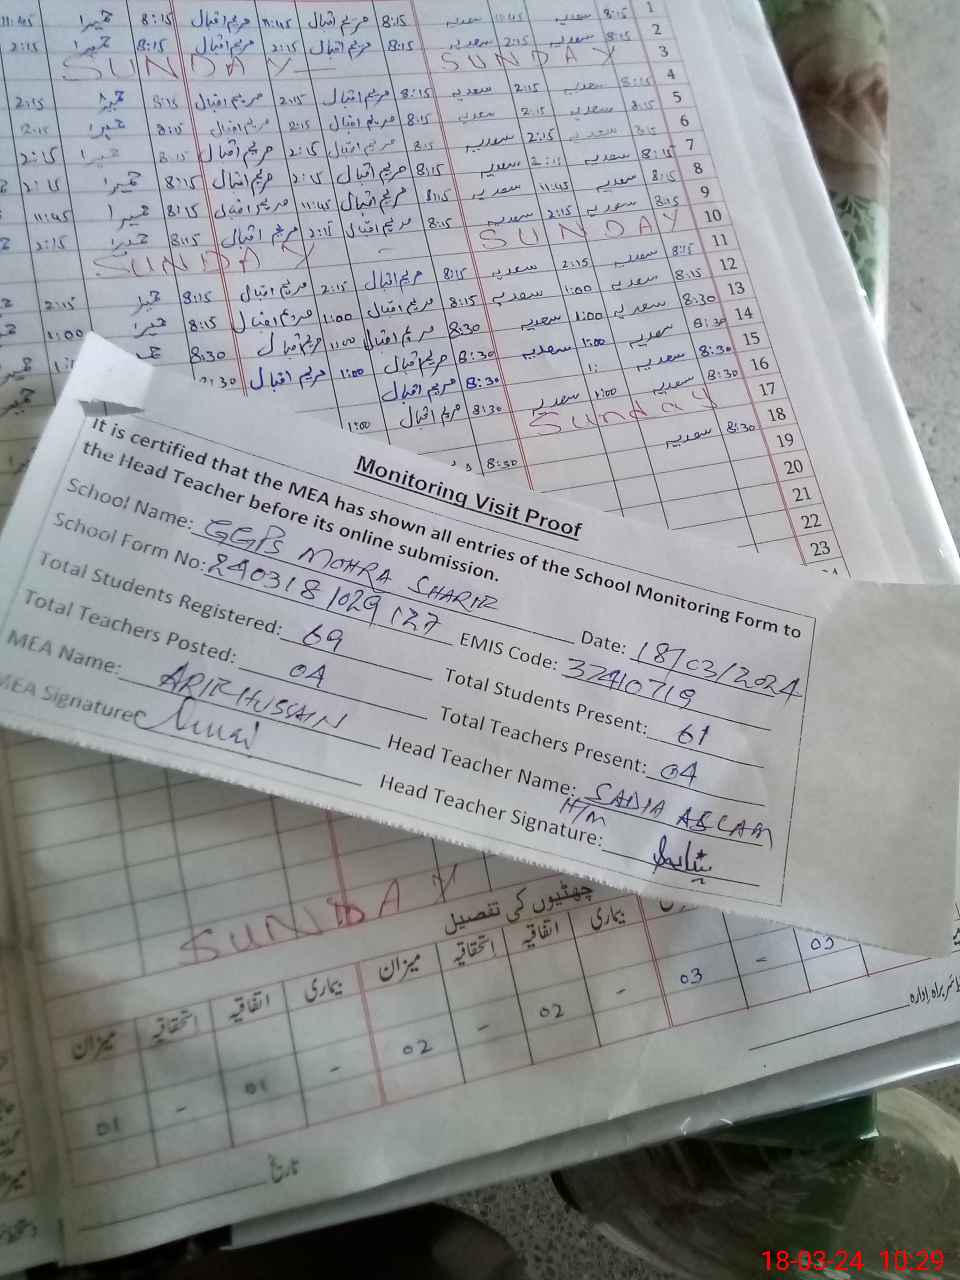 1
8:15 سعدیہ 11:45 سعدیہ 8:15 مریم اقبال 11:45 مریم اقبال 8:15 حمیرا 11:45
2
8:15 سعدیہ 2:15 سعدیہ 8:15 مریم اقبال 2:15 مریم اقبال 8:15 حمیرا 2:15
3
SUNDAY SUNDAY
4
8:15 سعدیہ 2:15 سعدیہ 8:15 مریم اقبال 2:15 مریم اقبال 8:15 حمیرا 2:15
5
8:15 سعدیہ 2:15 سعدیہ 8:15 مریم اقبال 2:15 مریم اقبال 8:15 حمیرا 2:15
6
8:15 سعدیہ 2:15 سعدیہ 8:15 مریم اقبال 2:15 مریم اقبال 8:15 حمیرا 2:15
7
8:15 سعدیہ 2:15 سعدیہ 8:15 مریم اقبال 2:15 مریم اقبال 8:15 حمیرا 2:15
8
8:15 سعدیہ 11:45 سعدیہ 8:15 مریم اقبال 11:45 مریم اقبال 8:15 حمیرا 11:45
9
8:15 سعدیہ 2:15 سعدیہ 8:15 مریم اقبال 2:15 مریم اقبال 8:15 حمیرا 2:15
10
SUNDAY SUNDAY
11
8:15 سعدیہ 2:15 سعدیہ 8:15 مریم اقبال 2:15 مریم اقبال 8:15 حمیرا 2:15
12
8:15 سعدیہ 1:00 سعدیہ 8:15 مریم اقبال 1:00 مریم اقبال 8:15 حمیرا 1:00
13
8:30 سعدیہ 1:00 سعدیہ 8:30 مریم اقبال 1:00 مریم اقبال 8:30
14
8:30 سعدیہ 1:00 سعدیہ 8:30 مریم اقبال 1:00 مریم اقبال
15
8:30 سعدیہ 8:30 مریم اقبال
16
8:30 سعدیہ 1:00 سعدیہ 8:30 مریم اقبال 1:00
17
Sunday
18
8:30 سعدیہ 8:30
19
20
21
22
23
Monitoring Visit Proof
It is certified that the MEA has shown all entries of the School Monitoring Form to
the Head Teacher before its online submission.
School Name: GGPS MOHRA SHARIF Date: 18/03/2024
School Form No: 2403181029127 EMIS Code: 37410719
Total Students Registered: 69 Total Students Present: 61
Total Teachers Posted: 04 Total Teachers Present: 04
MEA Name: ARIF HUSSAIN Head Teacher Name: SADIA ASLAM
H/M
MEA Signature Head Teacher Signature:
SUNDAY
چھٹیوں کی تفصیل
بیماری اتفاقیہ استحقاقیہ میزان بیماری اتفاقیہ استحقاقیہ میزان
03 - 03 - 02 - 02 - 01 - 01
سربراہ ادارہ
تاریخ
18-03-24 10:29